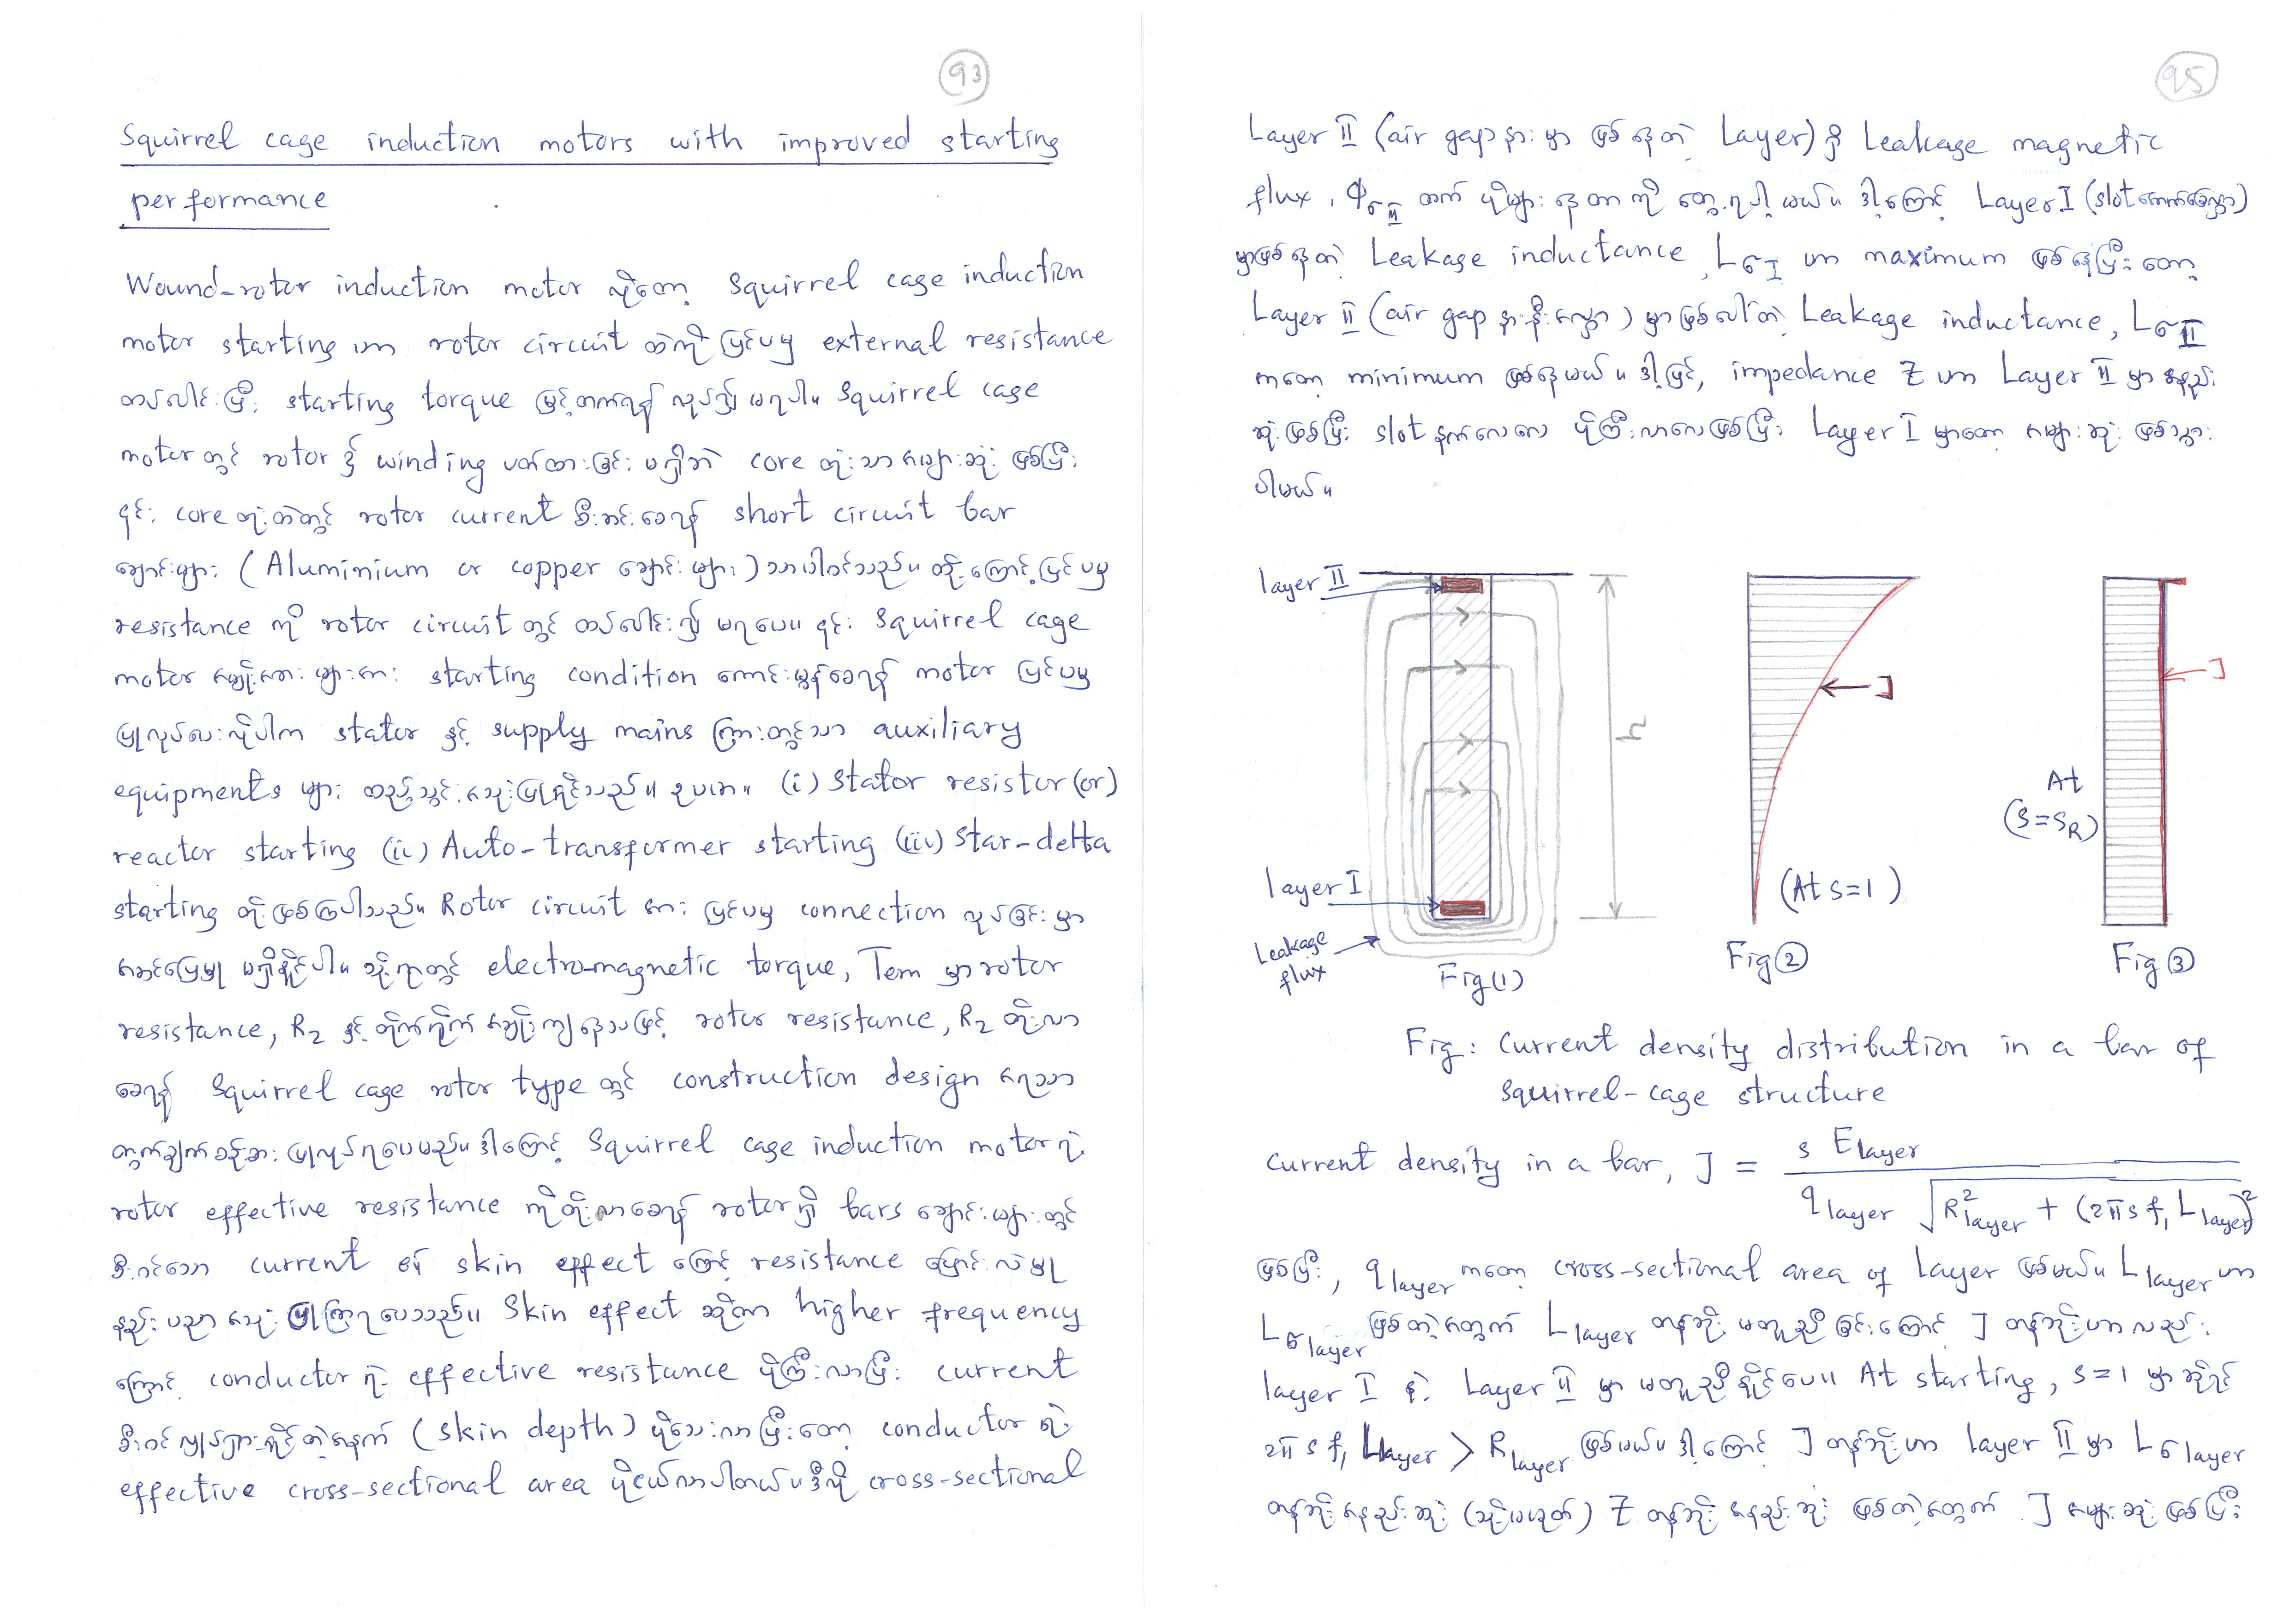 93
Squirrel cage induction motors with improved starting
performance
Wound-rotor induction motor လိုတော့ squirrel cage induction
motor starting ဟာ rotor circuit ထဲကို ပြင်ပမှ external resistance
တပ်လါင်းပြီး starting torque မြှင့်တက်ရန် လုပ်၍ မရပါ။ Squirrel cage
motor တွင် rotor ၌ winding ပတ်ထားခြင်း မရှိဘဲ core တုံးသာ အများဆုံး ဖြစ်ပြီး
၎င်း core တုံးထဲတွင် rotor current စီးဆင်းစေရန် short circuit bar
ချောင်းများ (Aluminium or copper ချောင်းများ) သာပါဝင်သည်။ ထို့ကြောင့် ပြင်ပမှ
resistance ကို rotor circuit တွင် တပ်လါင်း၍ မရပေ။ ၎င်း Squirrel cage
motor အမျိုးအစားများအား starting condition ကောင်းမွန်စေရန် motor ပြင်ပမှ
ပြုလုပ်လးလိုပါက stator နှင့် supply mains ကြားတွင်သာ auxiliary
equipments များ ထည့်သွင်းအသုံးပြုနိုင်သည်။ ဥပမာ။ (i) Stator resistor (or)
reactor starting (ii) Auto-transformer starting (iii) Star-delta
starting တို့ဖြစ်ကြပါသည်။ Rotor circuit အား ပြင်ပမှ connection လုပ်ခြင်းမှာ
အဆင်ပြေမှု မရှိနိုင်ပါ။ သို့ရာတွင် electro-magnetic torque, Tem မှာ rotor
resistance, R₂ နှင့် တိုက်ရိုက် အချိုးကျနေသဖြင့် rotor resistance, R₂ တိုးလာ
စေရန် Squirrel cage rotor type တွင် construction design အရသာ
တွက်ချက်စဉ်းစား ပြုလုပ်ရပေမည်။ ဒါကြောင့် Squirrel cage induction motor ရဲ့
rotor effective resistance ကိုတိုးလာစေရန် rotor ရှိ bars ချောင်းများတွင်
စီးဝင်သော current ၏ skin effect ကြောင့် resistance ပြောင်းလဲမှု
နည်းပညာ အသုံးပြုကြရပေသည်။ Skin effect ဆိုတာ higher frequency
ကြောင့် conductor ရဲ့ effective resistance ပိုကြီးလာပြီး current
စီးဝင်လျှပ်ကူးနိုင်တဲ့အနက် (skin depth) ပိုသေးလာပြီးတော့ conductor ရဲ့
effective cross-sectional area ပိုငယ်လာပါတယ်။ ဒီလို cross-sectional
95
Layer II (air gap နားမှာ ဖြစ်နေတဲ့ Layer) ရှိ Leakage magnetic
flux, Φσ II ထက် ပိုများနေတာကို တွေ့ရပါ့မယ်။ ဒါ့ကြောင့် Layer I (slot အောက်ခြေမှာ)
မှာဖြစ်နေတဲ့ Leakage inductance, Lσ I ဟာ maximum ဖြစ်နေပြီးတော့
Layer II (air gap နားနီးလျှော) မှာဖြစ်ပေါ်တဲ့ Leakage inductance, Lσ II
ကတော့ minimum ဖြစ်နေမယ်။ ဒါ့ပြင်, impedance Z ဟာ Layer II မှာ အနည်း
ဆုံးဖြစ်ပြီး slot နက်လေလေ ပိုကြီးလာလေဖြစ်ပြီး Layer I မှာတော့ အများဆုံး ဖြစ်သွား
ပါမယ်။
layer II
h
layer I
Leakage
flux
Fig (1)
J
(At s=1)
Fig ②
J
At
(s=s_R)
Fig ③
Fig: Current density distribution in a bar of
squirrel-cage structure
Current density in a bar, J = s E_layer / q_layer √(R²_layer + (2πs f₁ L_layer)²)
ဖြစ်ပြီး, q_layer ကတော့ cross-sectional area of Layer ဖြစ်မယ်။ L_layer ဟာ
Lσ layer ဖြစ်တဲ့အတွက် L_layer တန်ဘိုး မတူညီခြင်းကြောင့် J တန်ဘိုးဟာလည်း
layer I နဲ့ Layer II မှာ မတူညီနိုင်ပေ။ At starting, s=1 မှာဆိုရင်
2π s f₁ L_layer > R_layer ဖြစ်မယ်။ ဒါ့ကြောင့် J တန်ဘိုးဟာ layer II မှာ Lσ layer
တန်ဘိုးအနည်းဆုံး (သို့မဟုတ်) Z တန်ဘိုး အနည်းဆုံး ဖြစ်တဲ့အတွက် J အများဆုံးဖြစ်ပြီး